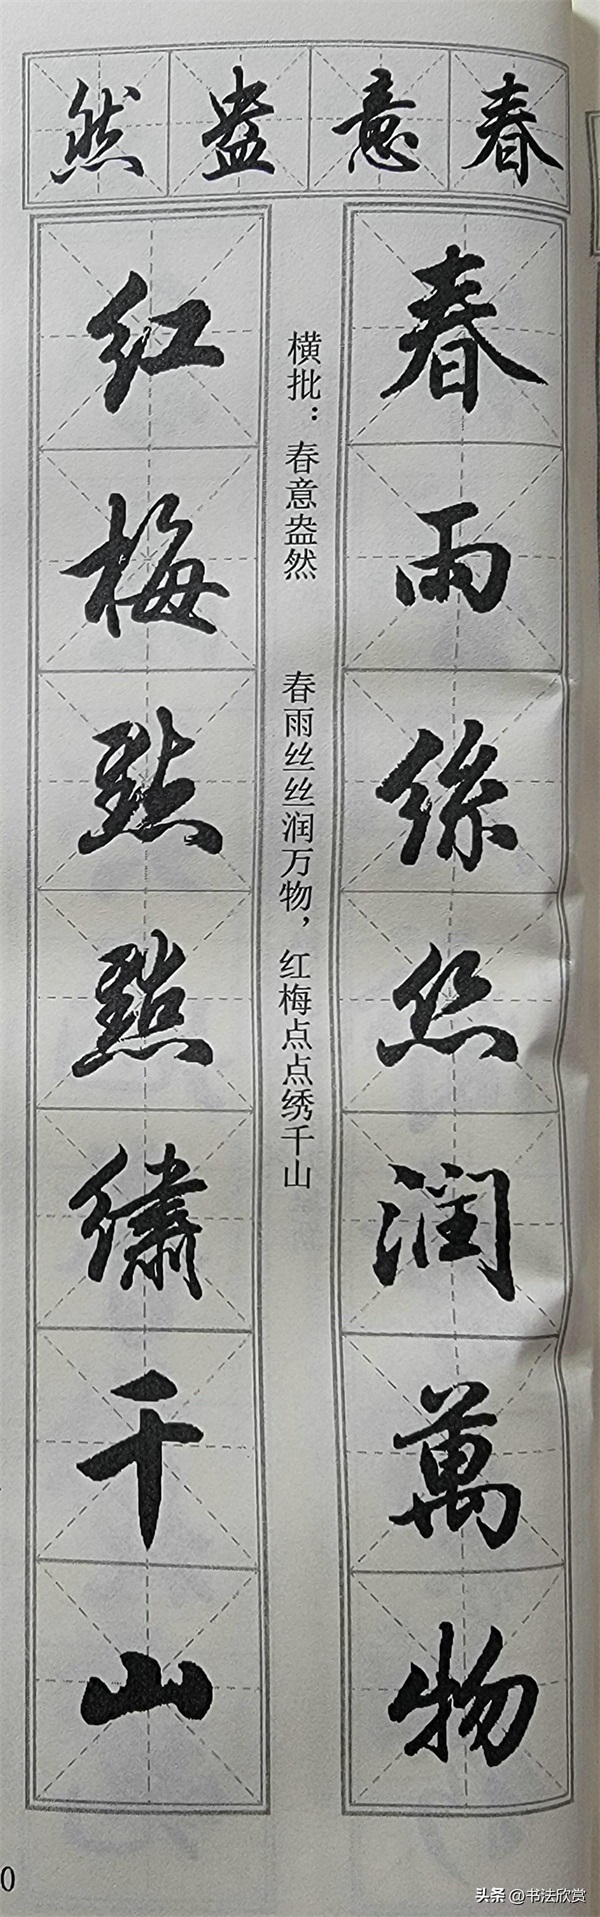 春意盎然
春雨絲丝潤萬物
横批：春意盎然 春雨丝丝润万物，红梅点点绣千山
红梅點點繡千山
0
头条 @书法欣赏